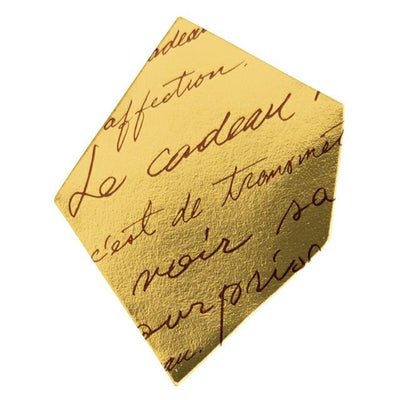 cadeau
affection.
Le cadeau
c'est de transmet
voir sa
surpris
au.